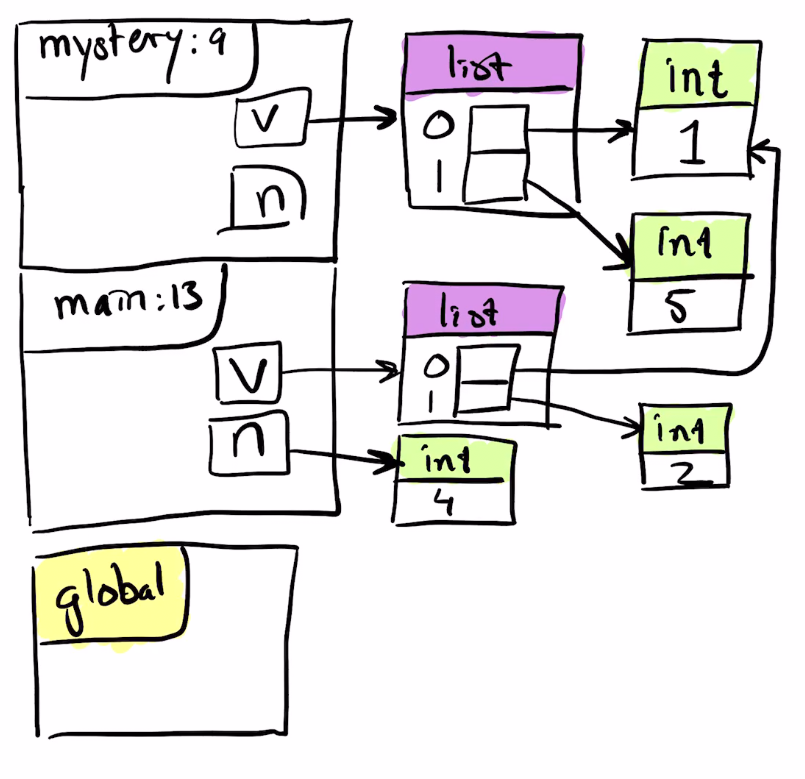 mystery:9
v
n
list
0
1
int
1
int
5
main:13
v
n
list
0
1
int
4
int
2
global